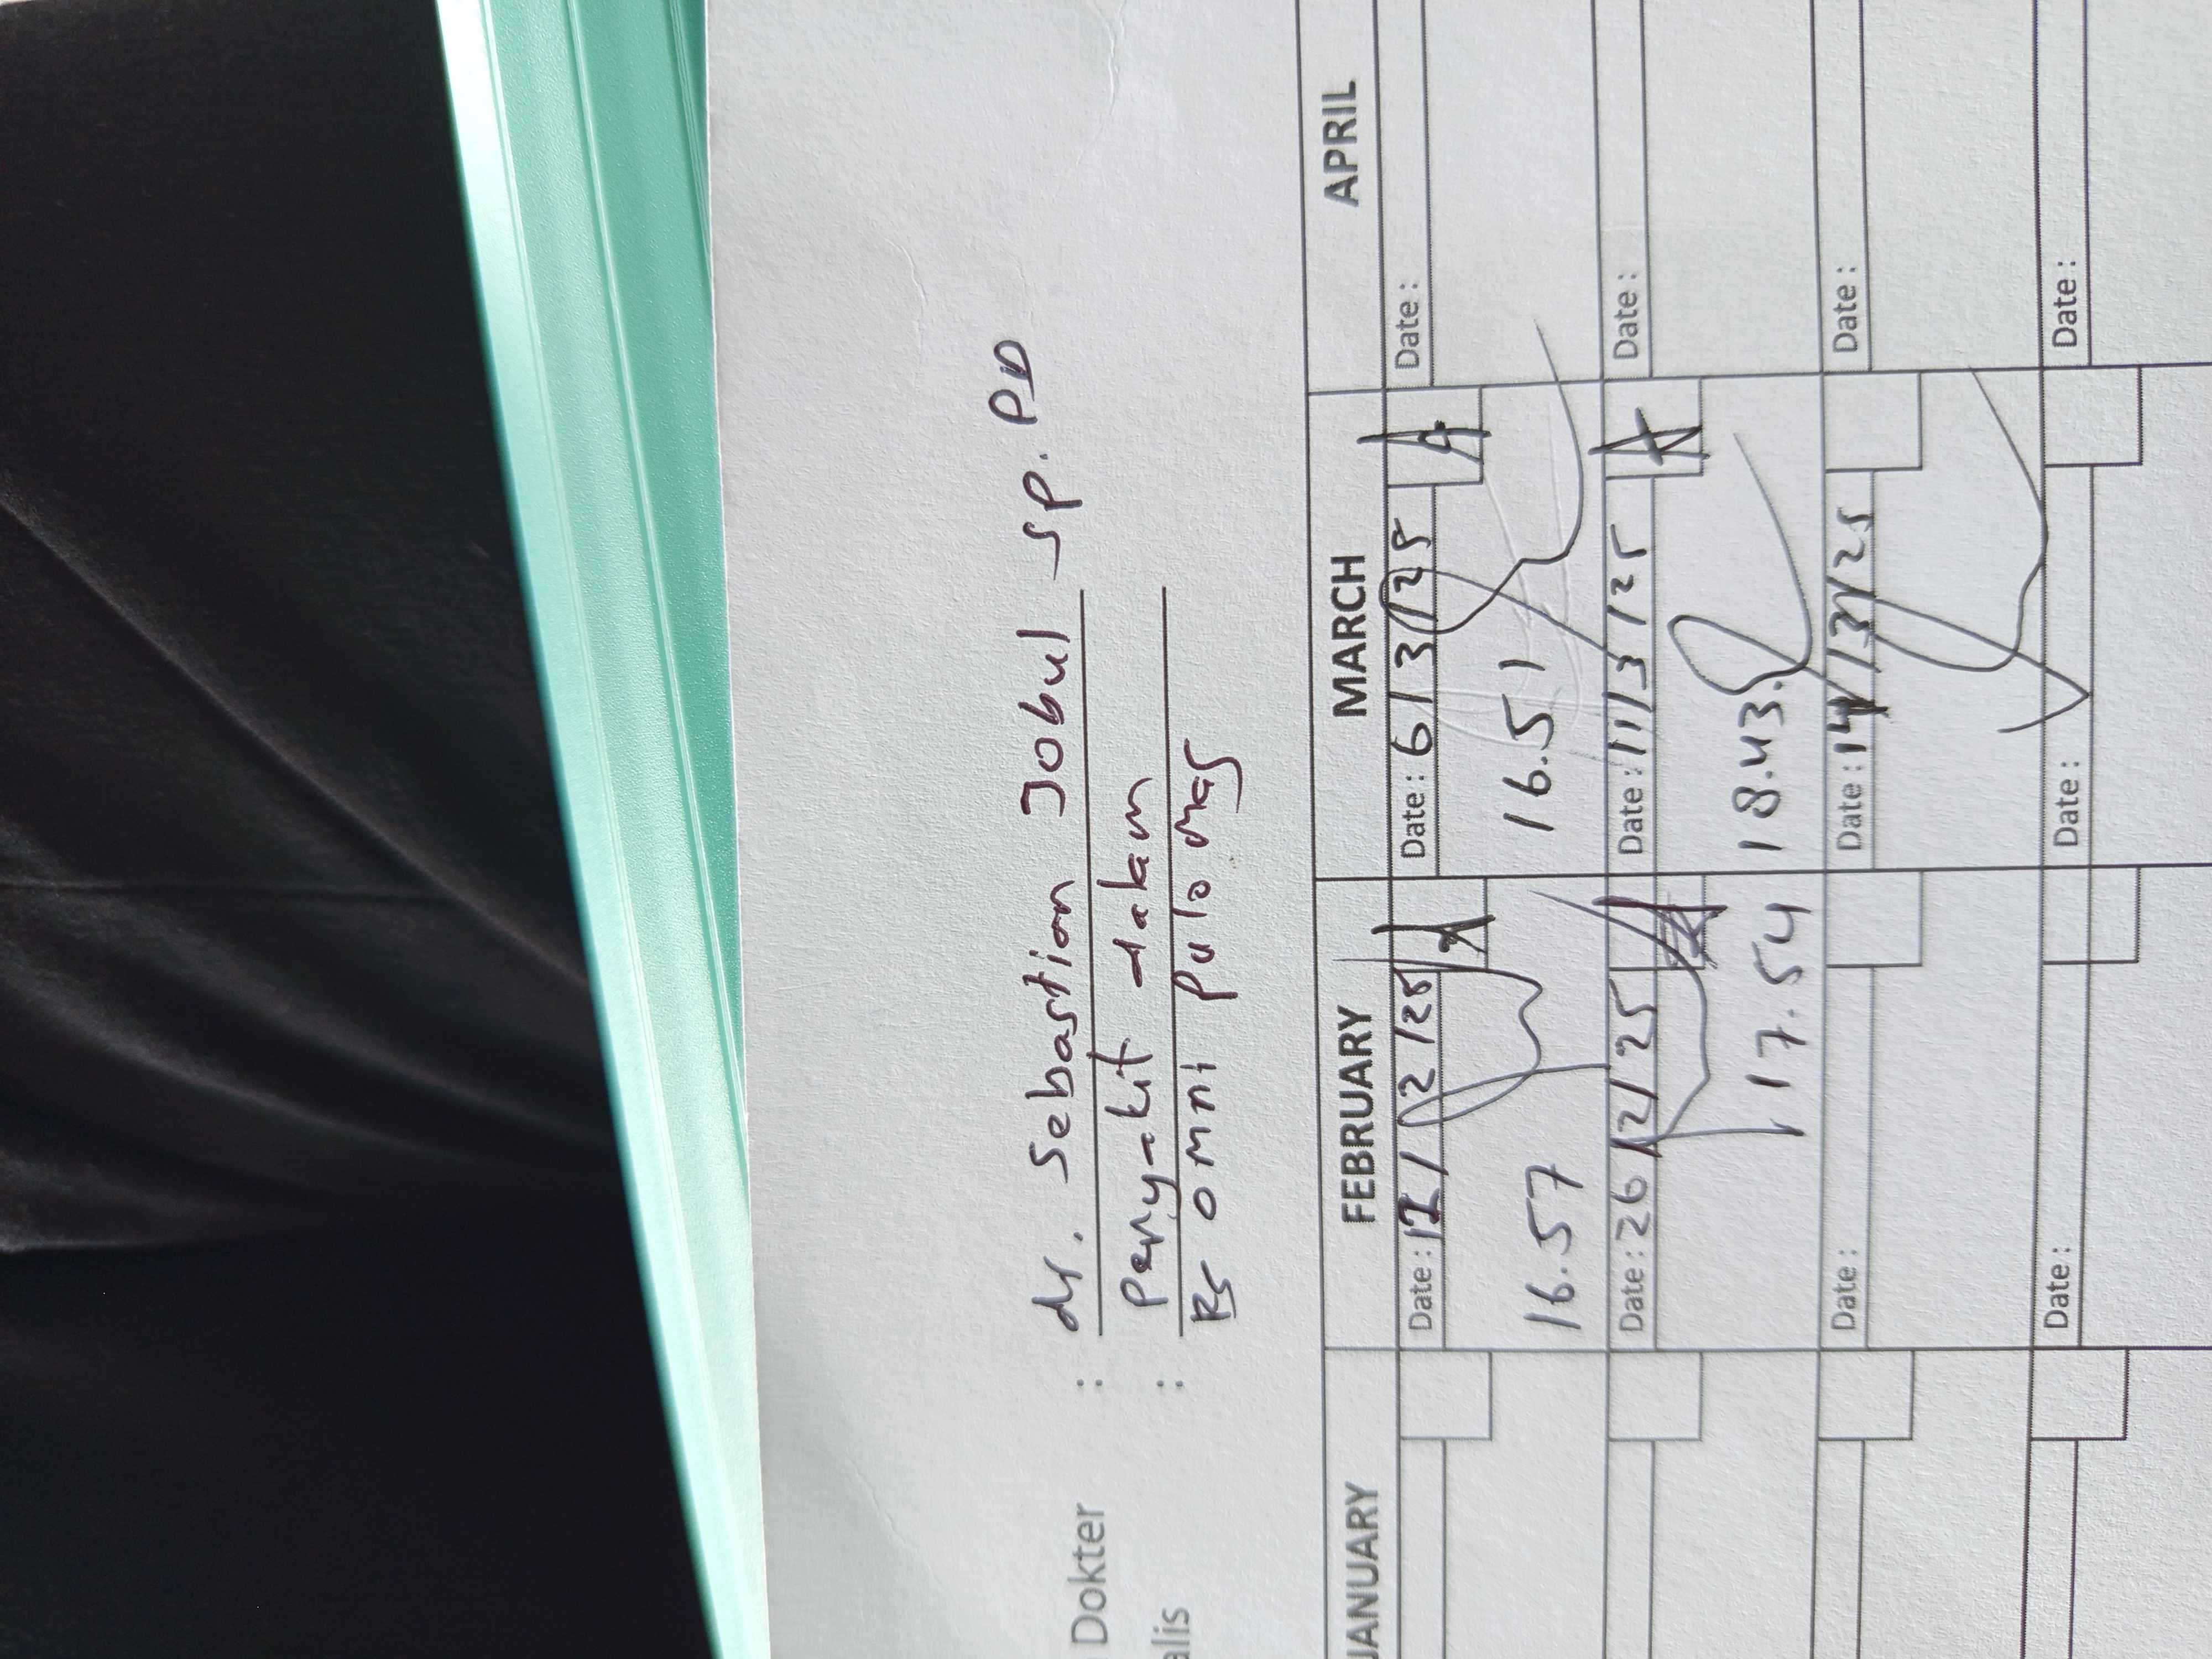 Dokter : dr. Sebastian Jobul Sp. PD
alis : Penyakit dalam
RS OMNI Pulo Mas
JANUARY FEBRUARY MARCH APRIL
Date : 12/2/25 Date : 6/3/25 Date :
16.57 16.51
Date : 26/2/25 Date : 11/3/25 Date :
17.54 18.43
Date : Date : 14/3/25 Date :
Date : Date : Date :